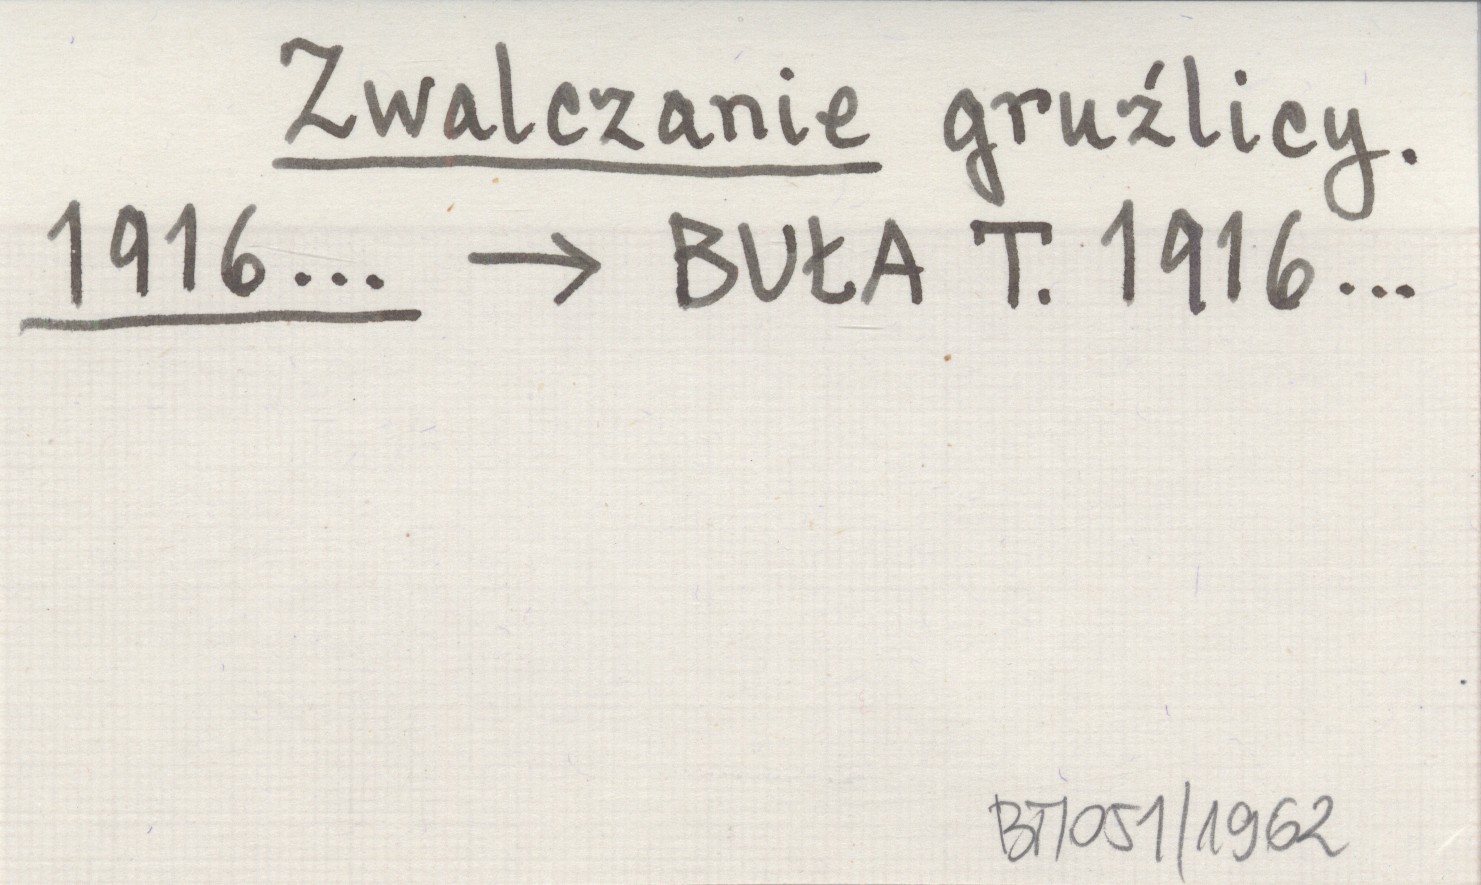 Zwalczanie gruźlicy.
1916... → BUŁA T. 1916...
BT/051/1962